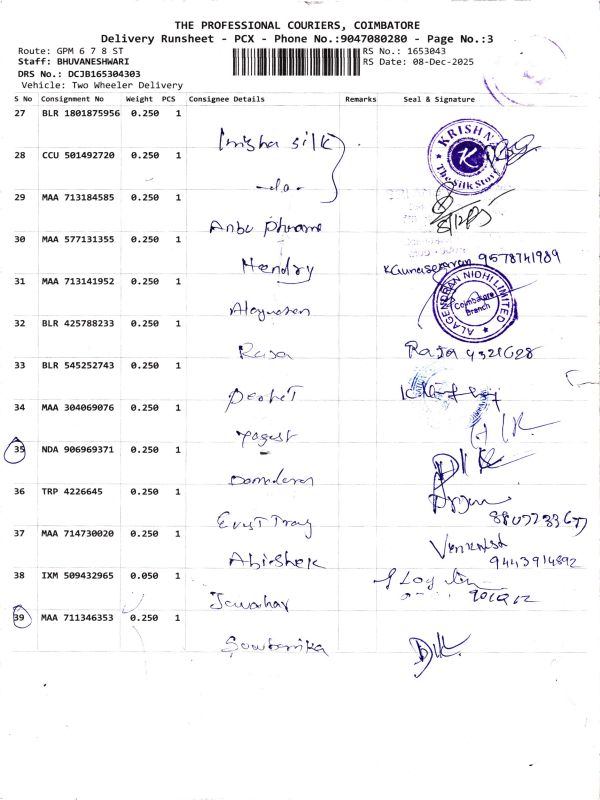 THE PROFESSIONAL COURIERS, COIMBATORE
Delivery Runsheet - PCX - Phone No.:9047080280 - Page No.:3
Route: GPM 6 7 8 ST
RS No.: 1653043
Staff: BHUVANESHWARI
RS Date: 08-Dec-2025
DRS No.: DCJB165304303
Vehicle: Two Wheeler Delivery
S No Consignment No Weight PCS Consignee Details Remarks Seal & Signature
27 BLR 1801875956 0.250 1
Krisha silk
KRISHN
K
The Silk Store
28 CCU 501492720 0.250 1
-do-
29 MAA 713184585 0.250 1
Anbu
30 MAA 577131355 0.250 1
Hendry
9578741989
31 MAA 713141952 0.250 1
ALAGENDRAN NIDHI LIMITED
Coimbatore Branch
32 BLR 425788233 0.250 1
Raja 4321628
33 BLR 545252743 0.250 1
34 MAA 304069076 0.250 1
35 NDA 906969371 0.250 1
36 TRP 4226645 0.250 1
37 MAA 714730020 0.250 1
Abishek
Venkatesh
9443914892
38 IXM 509432965 0.050 1
Jawahar
39 MAA 711346353 0.250 1
Sowbarnika